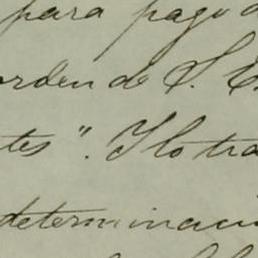 para pago d
orden de S. E
tes". Y lo tra
determinaci